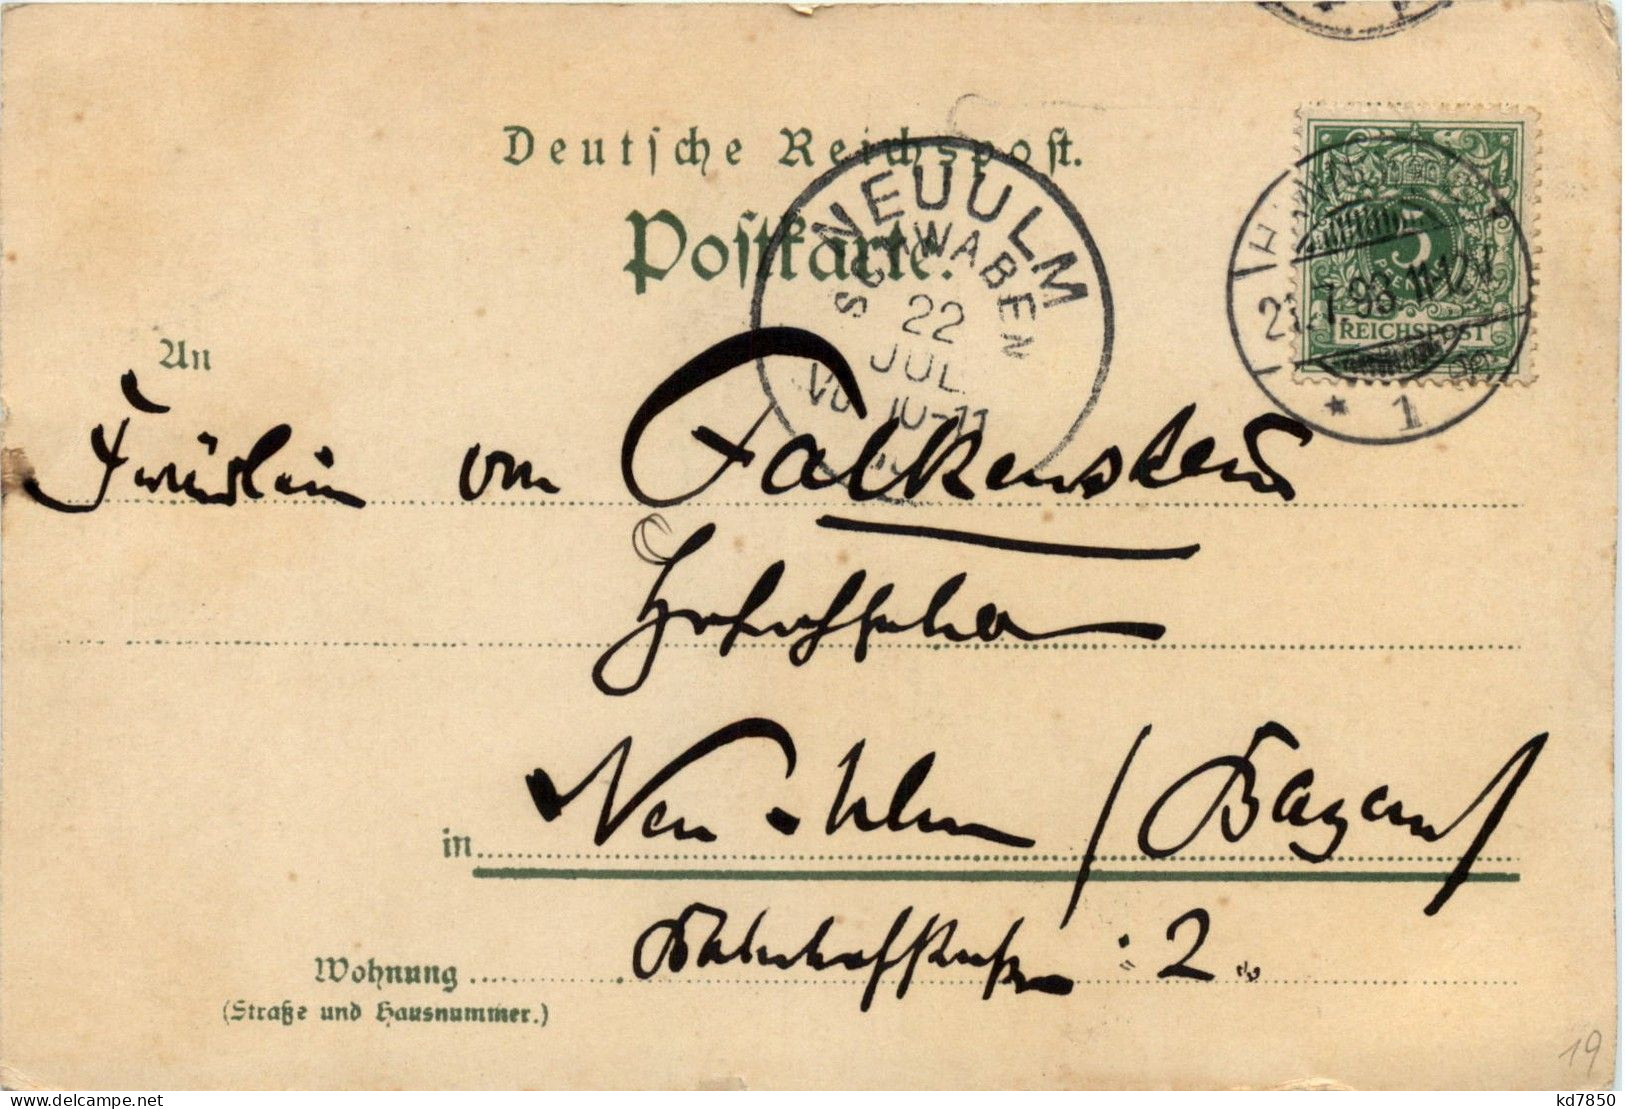 Deutsche Reichspost.
Postkarte.
NEUULM
SCHWABEN
22
JUL
VO 10-11
5
PFENNIG
REICHSPOST
21.7.93.11-12V.
* 1
An
Fräulein von Falkenstein
in Neu-Ulm / Bayern
Wohnung Bahnhofstrasse 2.
(Straße und Hausnummer.)
19
kd7850